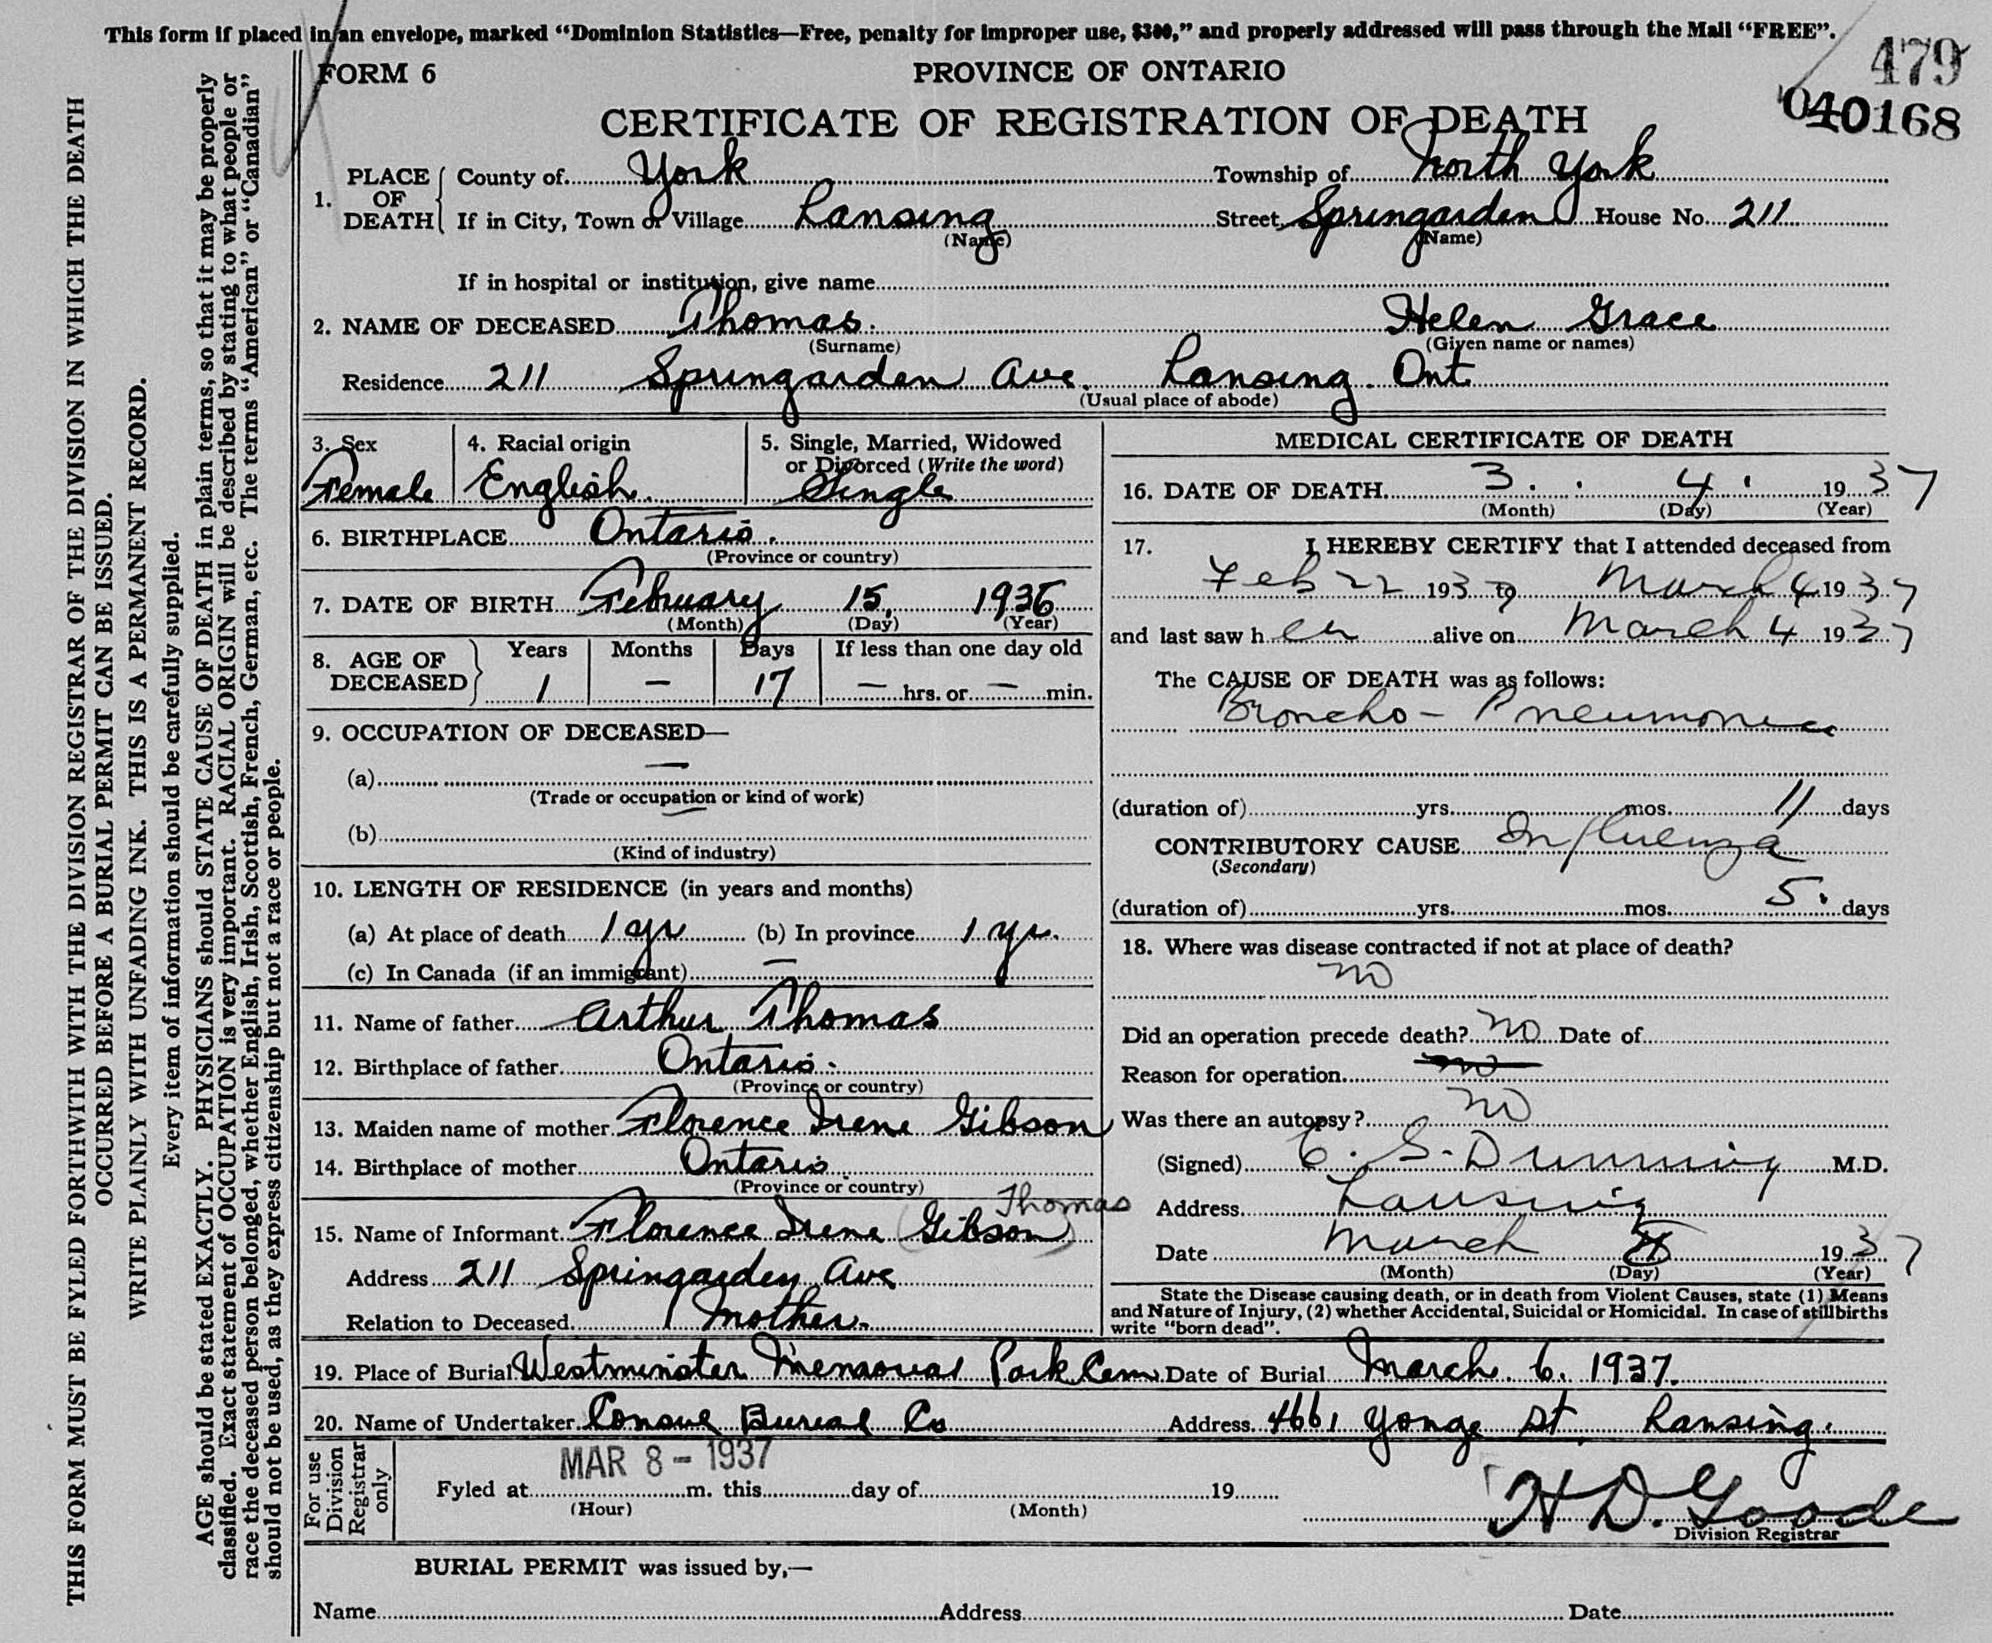 This form if placed in an envelope, marked “Dominion Statistics—Free, penalty for improper use, $300,” and properly addressed will pass through the Mail “FREE”.
479
040168
FORM 6
PROVINCE OF ONTARIO
CERTIFICATE OF REGISTRATION OF DEATH
1. PLACE OF DEATH County of York Township of North York
If in City, Town or Village Lansing (Name) Street Springarden (Name) House No. 211
If in hospital or institution, give name
2. NAME OF DECEASED Thomas. Helen Grace
(Surname) (Given name or names)
Residence 211 Springarden Ave. Lansing. Ont
(Usual place of abode)
3. Sex Female
4. Racial origin English.
5. Single, Married, Widowed or Divorced (Write the word) Single
6. BIRTHPLACE Ontario.
(Province or country)
7. DATE OF BIRTH February 15, 1936
(Month) (Day) (Year)
8. AGE OF DECEASED Years 1 Months — Days 17 If less than one day old — hrs. or — min.
9. OCCUPATION OF DECEASED—
(a) —
(Trade or occupation or kind of work)
(b) —
(Kind of industry)
10. LENGTH OF RESIDENCE (in years and months)
(a) At place of death 1 yr (b) In province 1 yr.
(c) In Canada (if an immigrant) —
11. Name of father Arthur Thomas
12. Birthplace of father Ontario.
(Province or country)
13. Maiden name of mother Florence Irene Gibson
14. Birthplace of mother Ontario
(Province or country)
Thomas
15. Name of Informant Florence Irene (Gibson)
Address 211 Springarden Ave
Relation to Deceased Mother.
MEDICAL CERTIFICATE OF DEATH
16. DATE OF DEATH 3. 4. 1937
(Month) (Day) (Year)
17. I HEREBY CERTIFY that I attended deceased from
Feb 22 1937 to March 4 1937
and last saw h er alive on March 4 1937
The CAUSE OF DEATH was as follows:
Broncho - Pneumonia
(duration of) yrs. mos. 11 days
CONTRIBUTORY CAUSE Influenza
(Secondary)
(duration of) yrs. mos. 5. days
18. Where was disease contracted if not at place of death?
no
Did an operation precede death? no Date of
Reason for operation no
Was there an autopsy? no
(Signed) C. S. Dunning M.D.
Address Lansing
Date March 1937
(Month) (Day) (Year)
State the Disease causing death, or in death from Violent Causes, state (1) Means
and Nature of Injury, (2) whether Accidental, Suicidal or Homicidal. In case of stillbirths
write “born dead”.
19. Place of Burial Westminster Memorial Park Cem. Date of Burial March. 6. 1937.
20. Name of Undertaker Burial Co Address 4661 Yonge St. Lansing.
For use Division Registrar only
MAR 8 - 1937
Fyled at m. this day of 19
(Hour) (Month)
H D. Goode
Division Registrar
BURIAL PERMIT was issued by,—
Name Address Date
THIS FORM MUST BE FYLED FORTHWITH WITH THE DIVISION REGISTRAR OF THE DIVISION IN WHICH THE DEATH
OCCURRED BEFORE A BURIAL PERMIT CAN BE ISSUED.
WRITE PLAINLY WITH UNFADING INK. THIS IS A PERMANENT RECORD.
Every item of information should be carefully supplied.
AGE should be stated EXACTLY. PHYSICIANS should STATE CAUSE OF DEATH in plain terms, so that it may be properly
classified. Exact statement of OCCUPATION is very important. RACIAL ORIGIN will be described by stating to what people or
race the deceased person belonged, whether English, Irish, Scottish, French, German, etc. The terms “American” or “Canadian”
should not be used, as they express citizenship but not a race or people.